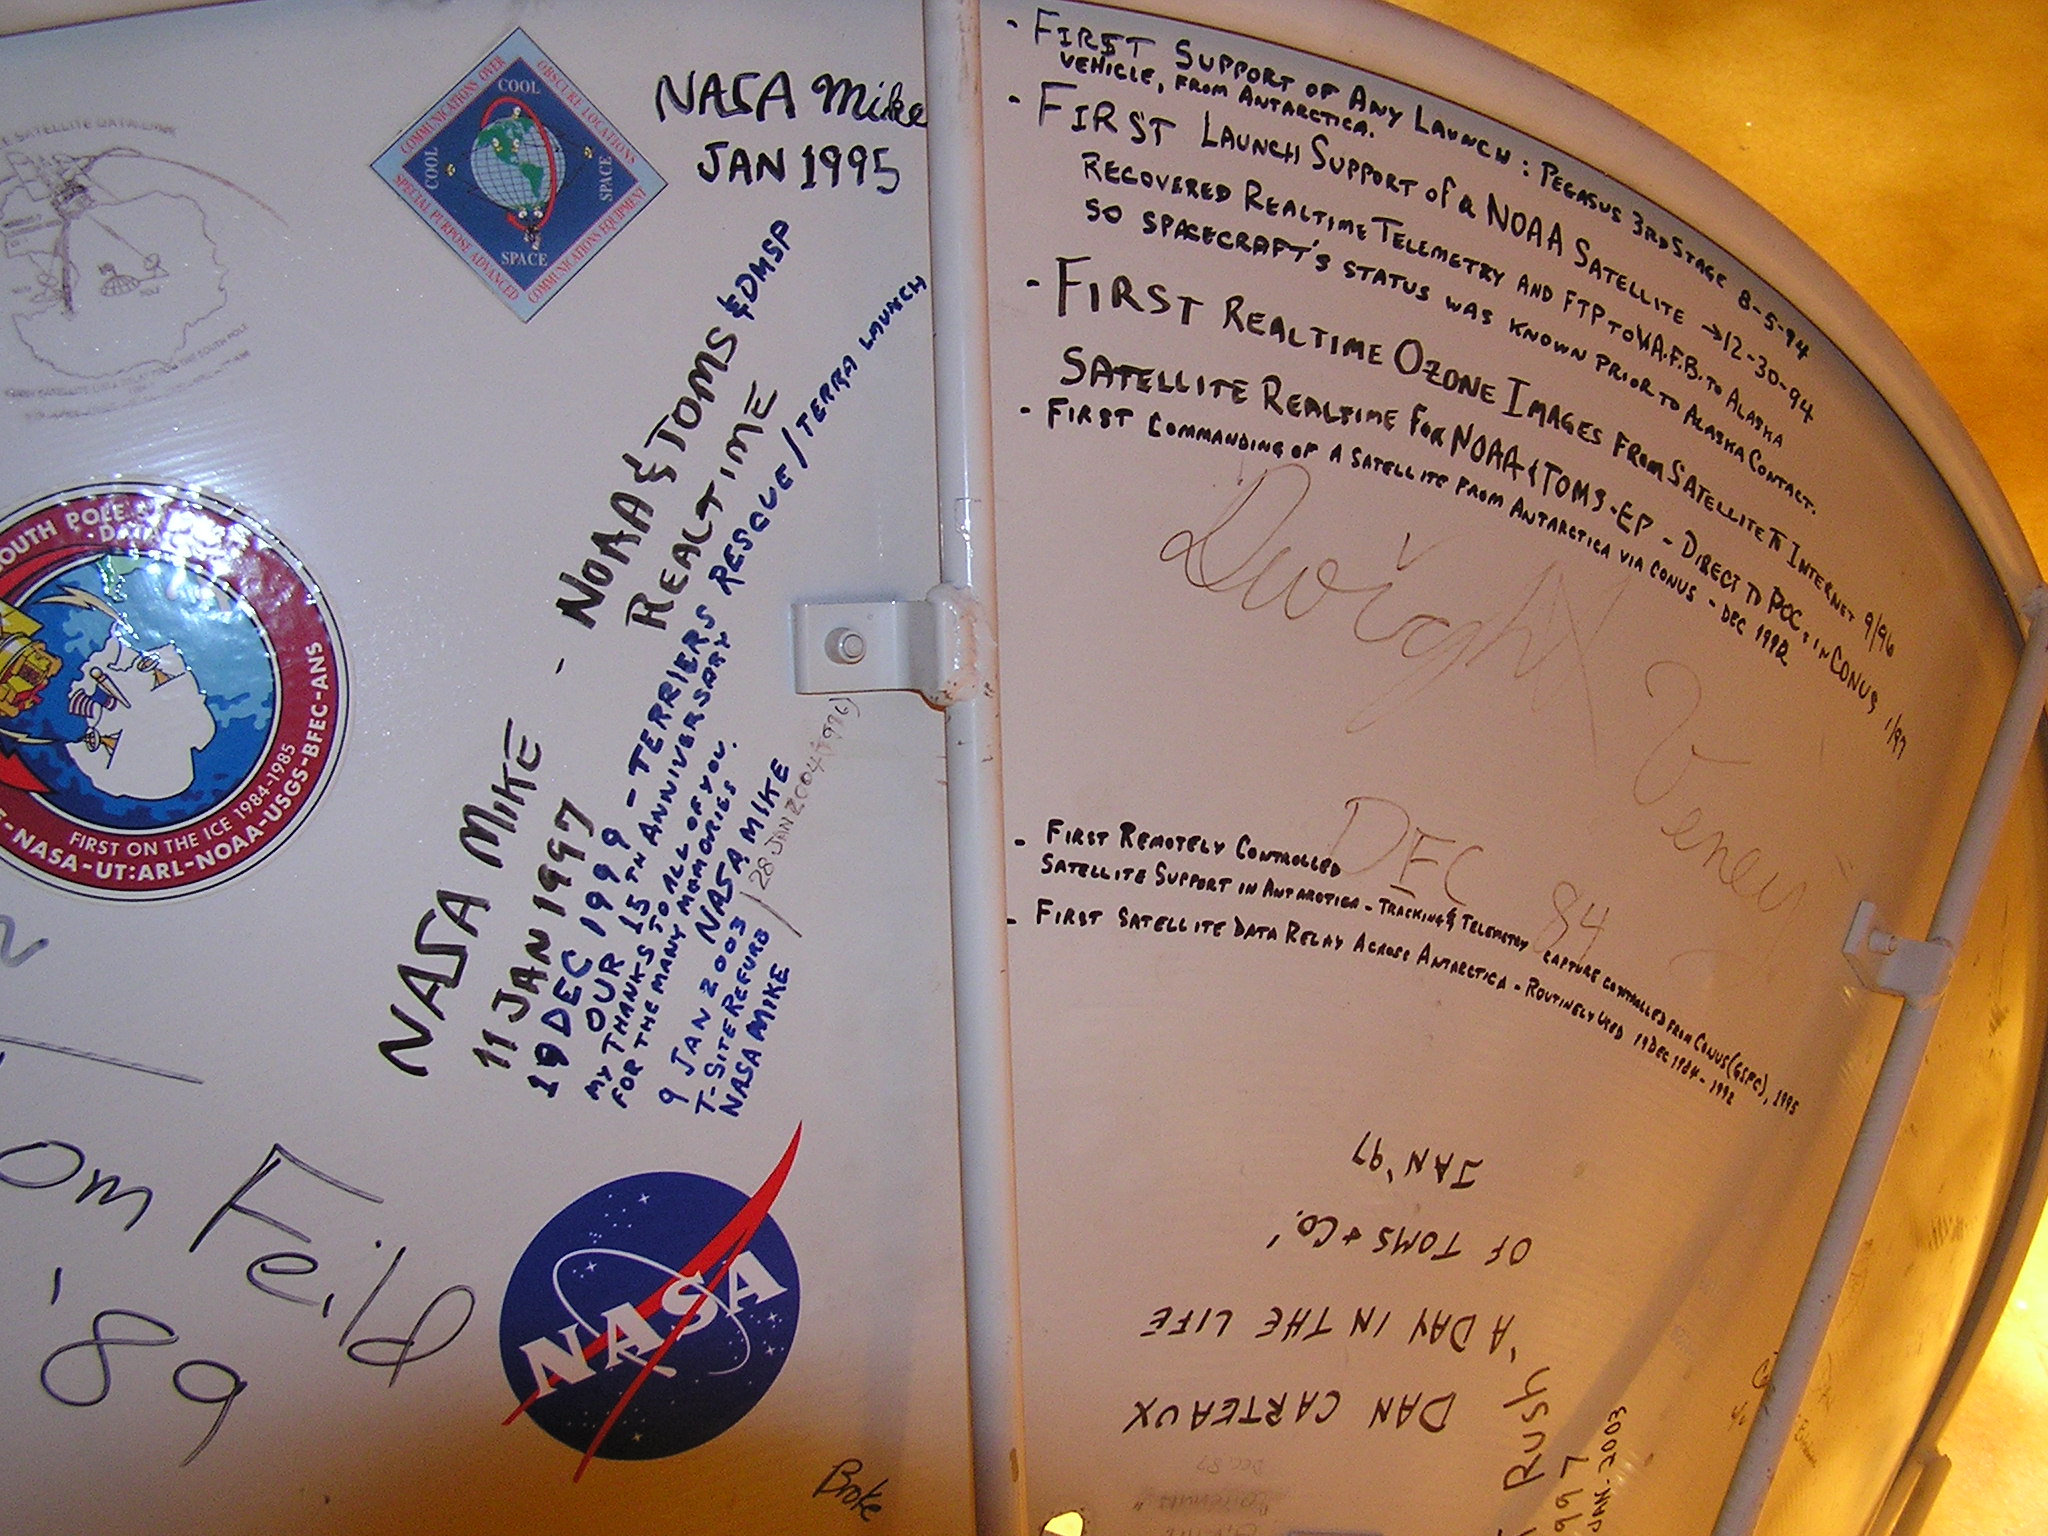 COMMUNICATIONS OVER
OBSCURE LOCATIONS
SPECIAL PURPOSE ADVANCED
COMMUNICATIONS EQUIPMENT
COOL
COOL
SPACE
SPACE
NASA Mike
JAN 1995
SATELLITE DATA LINK
SOUTH POLE
FIRST ON THE ICE 1984-1985
-NASA-UT:ARL-NOAA-USGS-BFEC-ANS
NASA MIKE - NOAA & TOMS & DMSP
11 JAN 1997 REALTIME
19 DEC 1999 - TERRIERS RESCUE/TERRA LAUNCH
OUR 15TH ANNIVERSARY
MY THANKS TO ALL OF YOU
FOR THE MANY MEMORIES.
NASA MIKE
9 JAN 2003 / 28 JAN 2004
T-SITE REFURB
NASA MIKE
Feild
'89
NASA
Broke
- FIRST SUPPORT OF ANY LAUNCH: PEGASUS 3RD STAGE 8-5-94
VEHICLE, FROM ANTARCTICA.
- FIRST LAUNCH SUPPORT OF a NOAA SATELLITE → 12-30-94
RECOVERED REALTIME TELEMETRY AND FTP TO V.A.F.B. TO ALASKA
SO SPACECRAFT'S STATUS WAS KNOWN PRIOR TO ALASKA CONTACT.
- FIRST REALTIME OZONE IMAGES FROM SATELLITE TO INTERNET 9/96
SATELLITE REALTIME FOR NOAA & TOMS-EP - DIRECT TO POC, IN CONUS 1/97
- FIRST COMMANDING OF A SATELLITE FROM ANTARCTICA VIA CONUS - DEC 1992
Dwight
DEC 84
- FIRST REMOTELY CONTROLLED
SATELLITE SUPPORT IN ANTARCTICA - TRACKING & TELEMETRY CAPTURE CONTROLLED FROM CONUS (GSFC), 1995
- FIRST SATELLITE DATA RELAY ACROSS ANTARCTICA - ROUTINELY USED 19 DEC 1984 - 1992
DAN CARTEAUX
'A DAY IN THE LIFE
OF TOMS & CO.'
JAN '97
RUSH
JAN. 2003